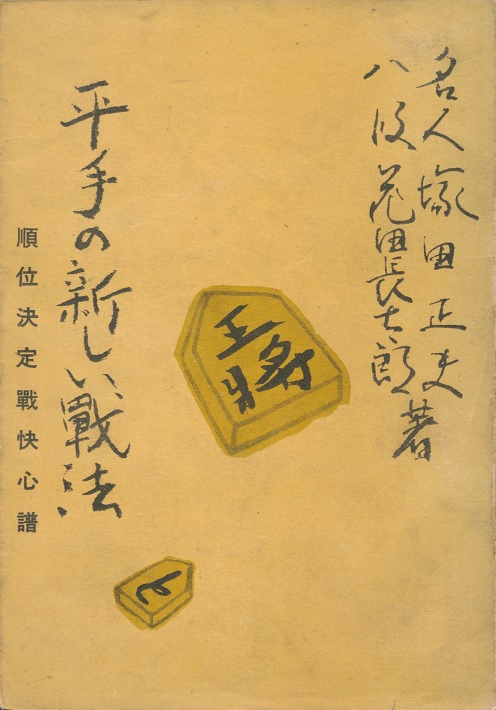 名人塚田正夫
八段花田長太郎著
平手の新しい戰法
順位決定戰快心譜
王將
と